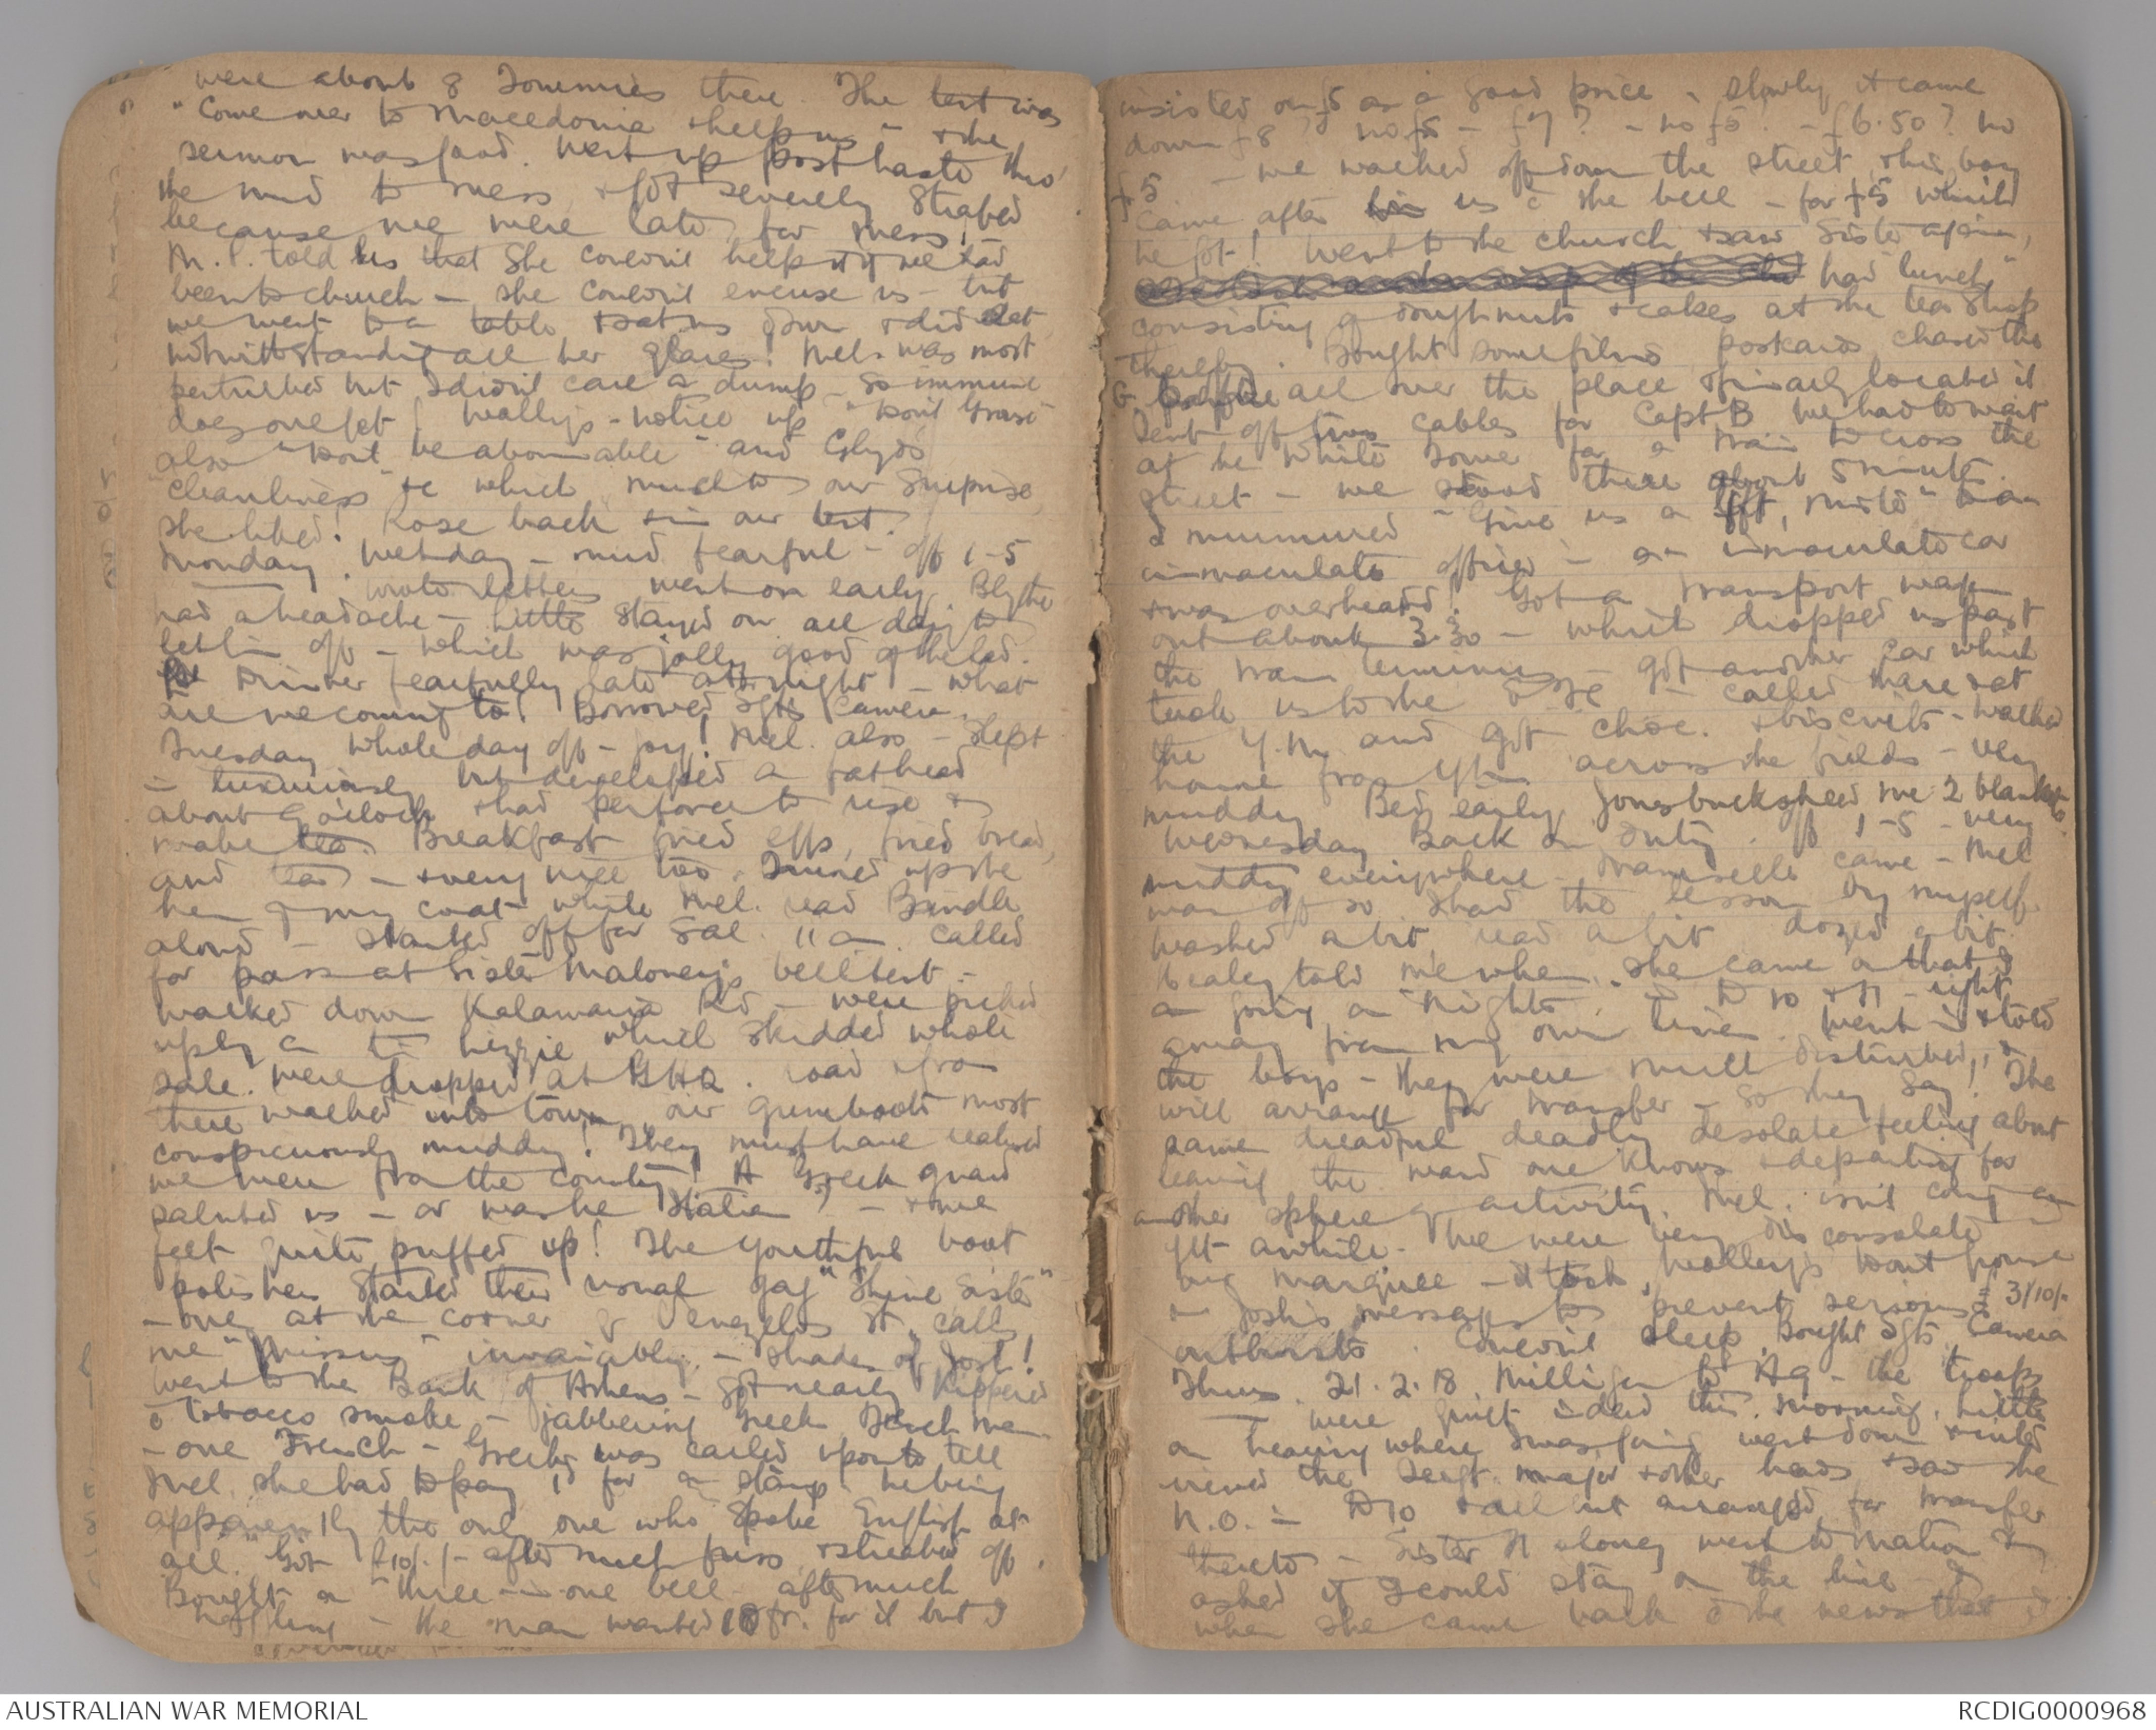 were about 8 Tommies there. The text was
"Come over to Macedonia & help us" - & the
sermon was good. Went up post haste thro'
the mud to mess & got severely strafed
because we were late for mess!
M.P. told us that she couldn't help it if we had
been to church - she couldn't excuse us - but
we went to a table & sat us down & did eat
notwithstanding all her glares! Mel. was most
perturbed but I didn't care a dump - so immune
does one get! Wally's - notice up "Don't Grouse"
also "Don't be abominable" and Clyde's
"Cleanliness" &c which much to our surprise
she liked! Rose back & in our tent.
Monday. Wet day - mud fearful - off 1-5
wrote letters went on early. Blythe
had a headache - Little stayed on all day to
let him off - which was jolly good of the lad.
Dinner fearfully late at night - what
are we coming to! Borrowed Sgts camera.
Tuesday Whole day off - joy! Mel. also - slept
in luxuriously but developed a fathead
about 9 o'clock & had perforce to rise &
make tea. Breakfast fried eggs, fried bread,
and tea - & very nice too. Turned up the
hem of my coat while Mel. read Bindle
aloud - started off for Sal. 11 am. Called
for pass at Sister Maloney's bell tent -
walked down Kalamaria Rd - were picked
up by a tin lizzie which skidded whole
sale. Were dropped at GHQ. road & from
there walked into town, our gumboots most
conspicuously muddy! They must have realised
we were from the country! A Greek guard
saluted us - or was he Italian? - & we
felt quite puffed up! The youthful boot
polishers started their usual gag "Shine Sister"
- one at the corner of Venezelos St. calls
me "Missus" invariably - shades of Josh!
Went to the Bank of Athens - got nearly kippered
c tobacco smoke - jabbering Greek French men
- one French - Greek was called upon to tell
Mel. she had to pay 1d for a stamp he being
apparently the only one who spoke English at
all. Got £10/-/- after much fuss & streaked off.
Bought a three-in-one bell - after much
haggling - the man wanted 10 fr. for it but I
insisted on f5 as a good price - slowly it came
down f8? no f5 - f7? - no f5. - f6.50? no
f5 - we walked off down the street & his boy
came after us c the bell - for f5 which
he got! Went to the church & saw Sister again,
had lunch
consisting of doughnuts & cakes at the tea shop
thereby. Bought some films postcards chased the
all over the place & finally located it
Sent off two cables for Capt B We had to wait
at the White Tower for a tram to cross the
street - we stood there about 5 minutes.
I murmured "Give us a lift, mister" to an
immaculate officer in an immaculate car
& was overheard! Got a transport wagon
out about 3.30 - which dropped us past
the tram terminus - got another car which
took us to the - called there & at
the Y.M. and got choc. & biscuits - walked
home from Y.M. across the fields - very
muddy. Bed early. Jonesbucksheed me 2 blankets
Wednesday Back on duty. off 1-5 - very
muddy everywhere - Mamselle came - Mel
was off so I had the lesson by myself.
Washed a bit, read a bit dozed a bit.
Bealey told me when she came on that I
am going on nights. in D 10 & 11 - right
away from my own line. Went in & told
the boys - they were much disturbed, &
will arrange for transfer - so they say! The
same dreadful deadly desolate feeling about
leaving the ward one knows & departing for
another sphere of activity. Mel. isn't coming on
yet awhile. We were very disconsolate
our marquee - it took Wally's Don't grouse
& Josh's message to prevent serious
outbursts. Couldn't sleep. Bought Sgts Camera £3/10/-
Thurs. 21.2.18. Milligan to HQ - the troops
were quiet indeed this morning. Little
on hearing where I was going went down & inter
viewed the Sergt. major & other heads & saw the
N.O. in D10 & all but arranged for transfer
thereto - Sister Maloney went to Matron &
asked if I could stay on the line - &
when she came back c the news that I
AUSTRALIAN WAR MEMORIAL
RCDIG0000968